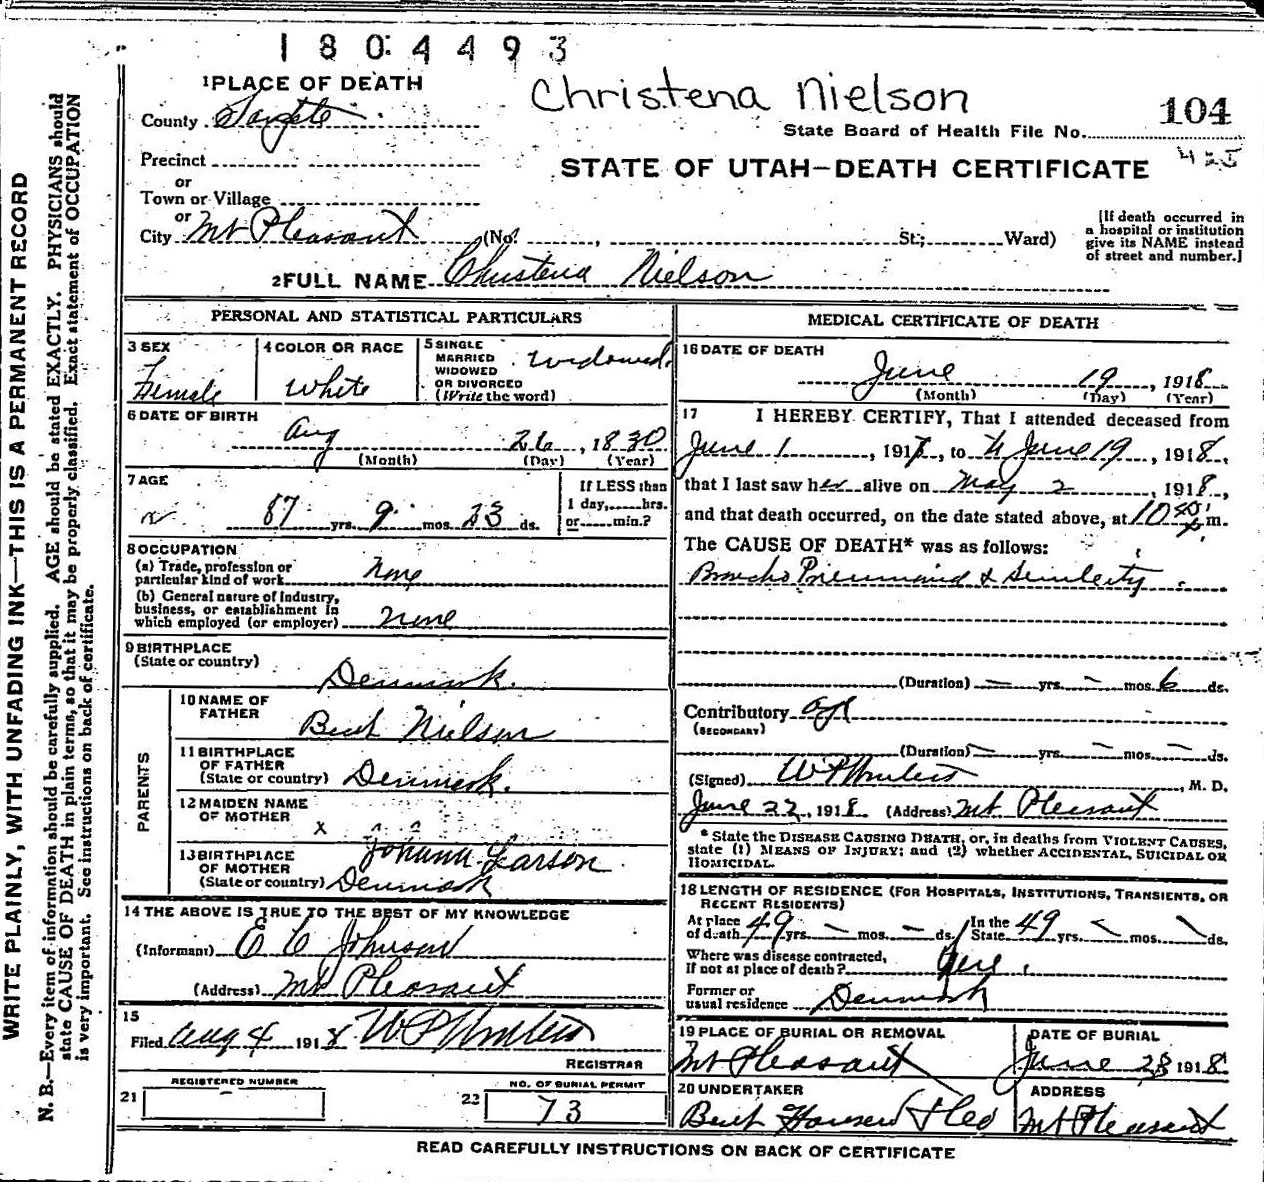 1804493
Christena Nielson
104
State Board of Health File No.
425
STATE OF UTAH—DEATH CERTIFICATE
1 PLACE OF DEATH
County Sanpete
Precinct
or
Town or Village
or
City Mt Pleasant (No. , St.; Ward)
[If death occurred in
a hospital or institution
give its NAME instead
of street and number.]
2 FULL NAME Christena Nielson
PERSONAL AND STATISTICAL PARTICULARS
3 SEX
Female
4 COLOR OR RACE
White
5 SINGLE
MARRIED
WIDOWED
OR DIVORCED
(Write the word)
Widowed.
6 DATE OF BIRTH
Aug 26, 1830
(Month) (Day) (Year)
7 AGE
87 yrs. 9 mos. 23 ds.
If LESS than
1 day, hrs.
or min.?
8 OCCUPATION
(a) Trade, profession or
particular kind of work None
(b) General nature of Industry,
business, or establishment in
which employed (or employer) None
9 BIRTHPLACE
(State or country)
Denmark.
PARENTS
10 NAME OF
FATHER
Bent Nielson
11 BIRTHPLACE
OF FATHER
(State or country) Denmark.
12 MAIDEN NAME
OF MOTHER
X
Johana Larson
13 BIRTHPLACE
OF MOTHER
(State or country) Denmark
14 THE ABOVE IS TRUE TO THE BEST OF MY KNOWLEDGE
(Informant) E C Johnson
(Address) Mt Pleasant
15
Filed Aug 4 1918
REGISTRAR
21
REGISTERED NUMBER
22
NO. OF BURIAL PERMIT
73
MEDICAL CERTIFICATE OF DEATH
16 DATE OF DEATH
June 19, 1918
(Month) (Day) (Year)
17 I HEREBY CERTIFY, That I attended deceased from
June 1, 191, to June 19, 1918,
that I last saw her alive on May 2, 1918,
and that death occurred, on the date stated above, at 10 45 m.
The CAUSE OF DEATH* was as follows:
Broncho Pneumonia &
(Duration) — yrs. — mos. 6 ds.
Contributory age
(SECONDARY)
(Duration) — yrs. — mos. — ds.
(Signed) , M. D.
June 22, 1918 (Address) Mt Pleasant
* State the DISEASE CAUSING DEATH, or, in deaths from VIOLENT CAUSES,
state (1) MEANS OF INJURY; and (2) whether ACCIDENTAL, SUICIDAL OR
HOMICIDAL.
18 LENGTH OF RESIDENCE (FOR HOSPITALS, INSTITUTIONS, TRANSIENTS, OR
RECENT RESIDENTS)
At place
of death 49 yrs. — mos. — ds.
In the
State 49 yrs. mos. ds.
Where was disease contracted,
If not at place of death? here.
Former or
usual residence Denmark
19 PLACE OF BURIAL OR REMOVAL
Mt Pleasant
DATE OF BURIAL
June 23 1918
20 UNDERTAKER
Bent Hansen
ADDRESS
Mt Pleasant
READ CAREFULLY INSTRUCTIONS ON BACK OF CERTIFICATE
WRITE PLAINLY, WITH UNFADING INK—THIS IS A PERMANENT RECORD
N. B.—Every item of information should be carefully supplied. AGE should be stated EXACTLY. PHYSICIANS should
state CAUSE OF DEATH in plain terms, so that it may be properly classified. Exact statement of OCCUPATION
is very important. See instructions on back of certificate.